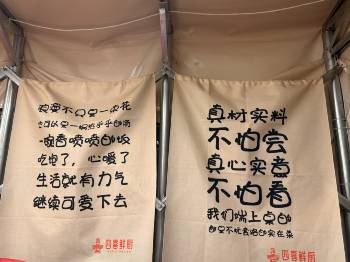 我要不只是一四花
也可以是一碗热乎乎的汤
一碗香喷喷的饭
吃饱了，心暖了
生活就有力气
继续可爱下去
四喜鲜厨
真材实料
不怕尝
真心实煮
不怕看
我们端上桌的
四喜鲜厨